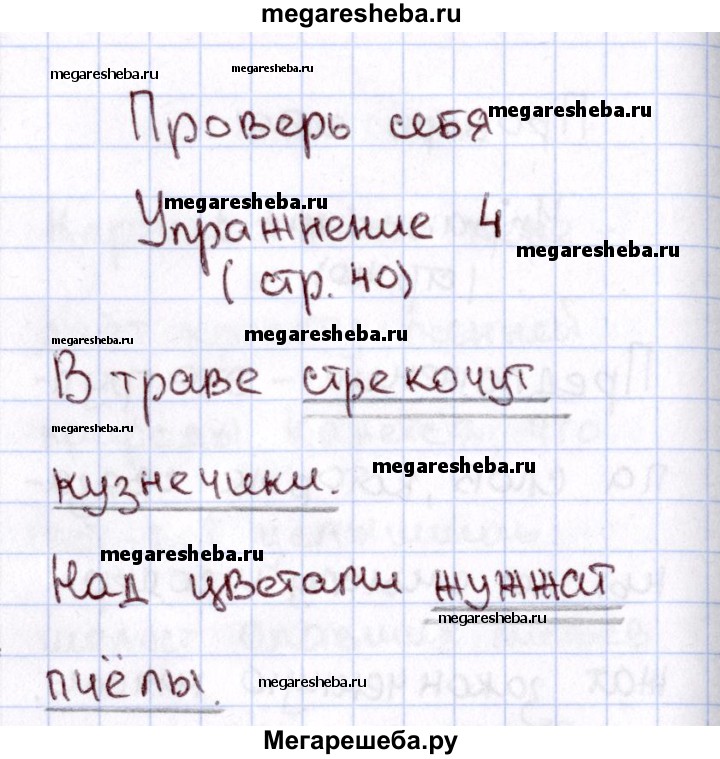 megaresheba.ru
megaresheba.ru megaresheba.ru
Проверь себя megaresheba.ru
megaresheba.ru
Упражнение 4
megaresheba.ru
(стр. 40)
megaresheba.ru megaresheba.ru
В траве стрекочут
megaresheba.ru
кузнечики. megaresheba.ru
megaresheba.ru
Над цветами жужжат
megaresheba.ru
пчёлы. megaresheba.ru
Мегарешеба.ру